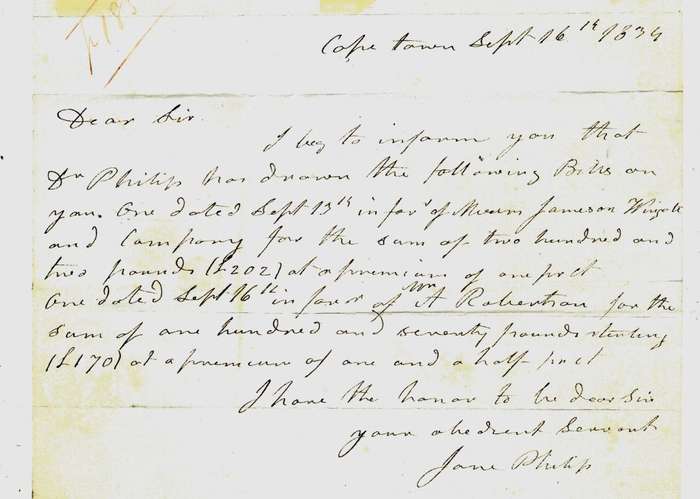 p 183
Cape town Sept 16th 1834
Dear Sir.
I beg to inform you that
Dr Philip has drawn the following Bills on
you. One dated Sept 13th in favr of Messrs Jameson Wingate
and Company for the sum of two hundred and
two pounds (£202) at a premium of one prct
One dated Sept 16th in favor of Mr A Robertson for the
sum of one hundred and seventy pounds sterling
(£170) at a premium of one and a half prct
I have the honor to be dear Sir
your obedient Servant
Jane Philip